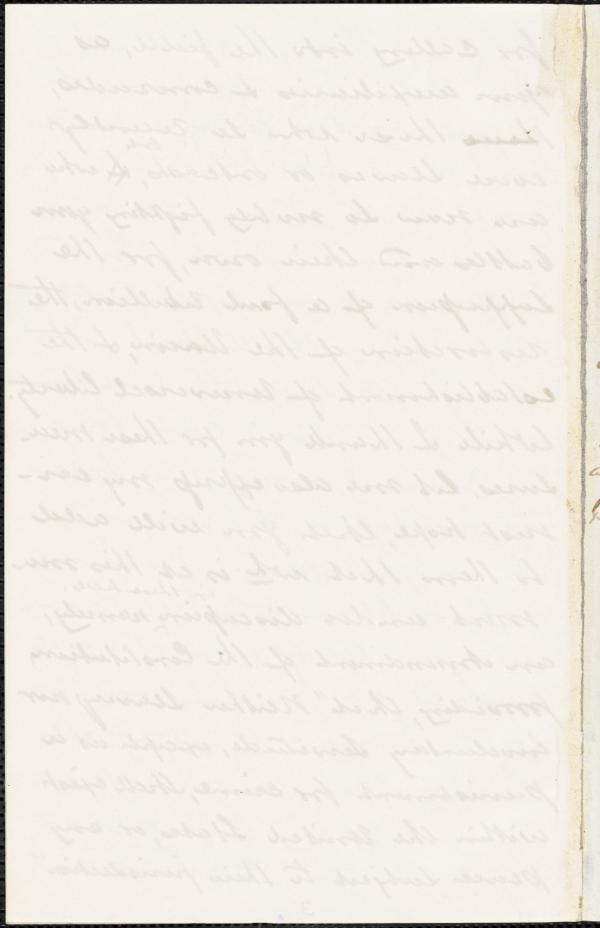 for calling into the field, as
your auxiliaries & comrades,
those who so recently
were slaves or outcasts, & who
are now so nobly fighting your
battles and their own, for the
suppression of a foul rebellion, the
restoration of the Union, & the
establishment of universal liberty.
While I thank you for these mea-
sures, let me also express my ear-
nest hope, that you will add
to them that wh. is at this mo-
ment under discussion, namely,
an Amendment of the Constitution
providing, that "Neither slavery nor
involuntary servitude, except as a
punishment for crime, shall exist
within the United States, or any
place subject to their jurisdiction"
3